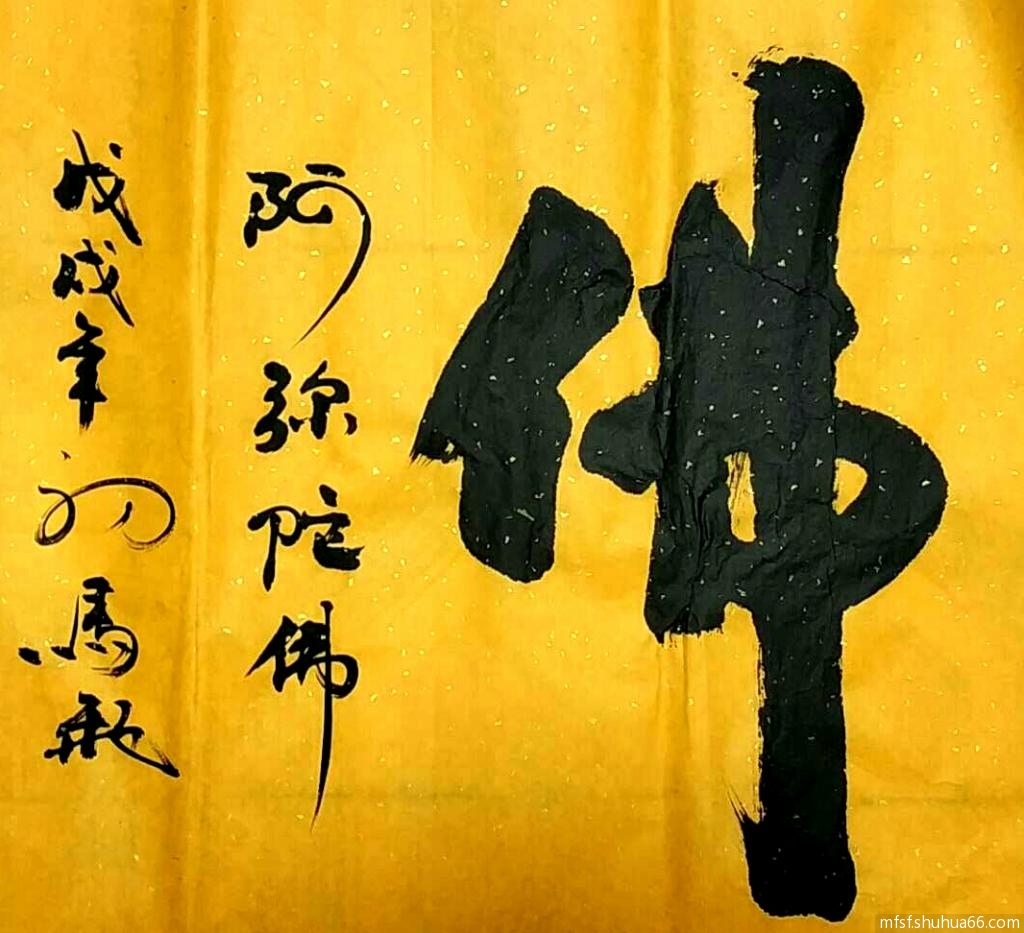 佛
阿弥陀佛
戊戌年
mfsf.shuhua66.com